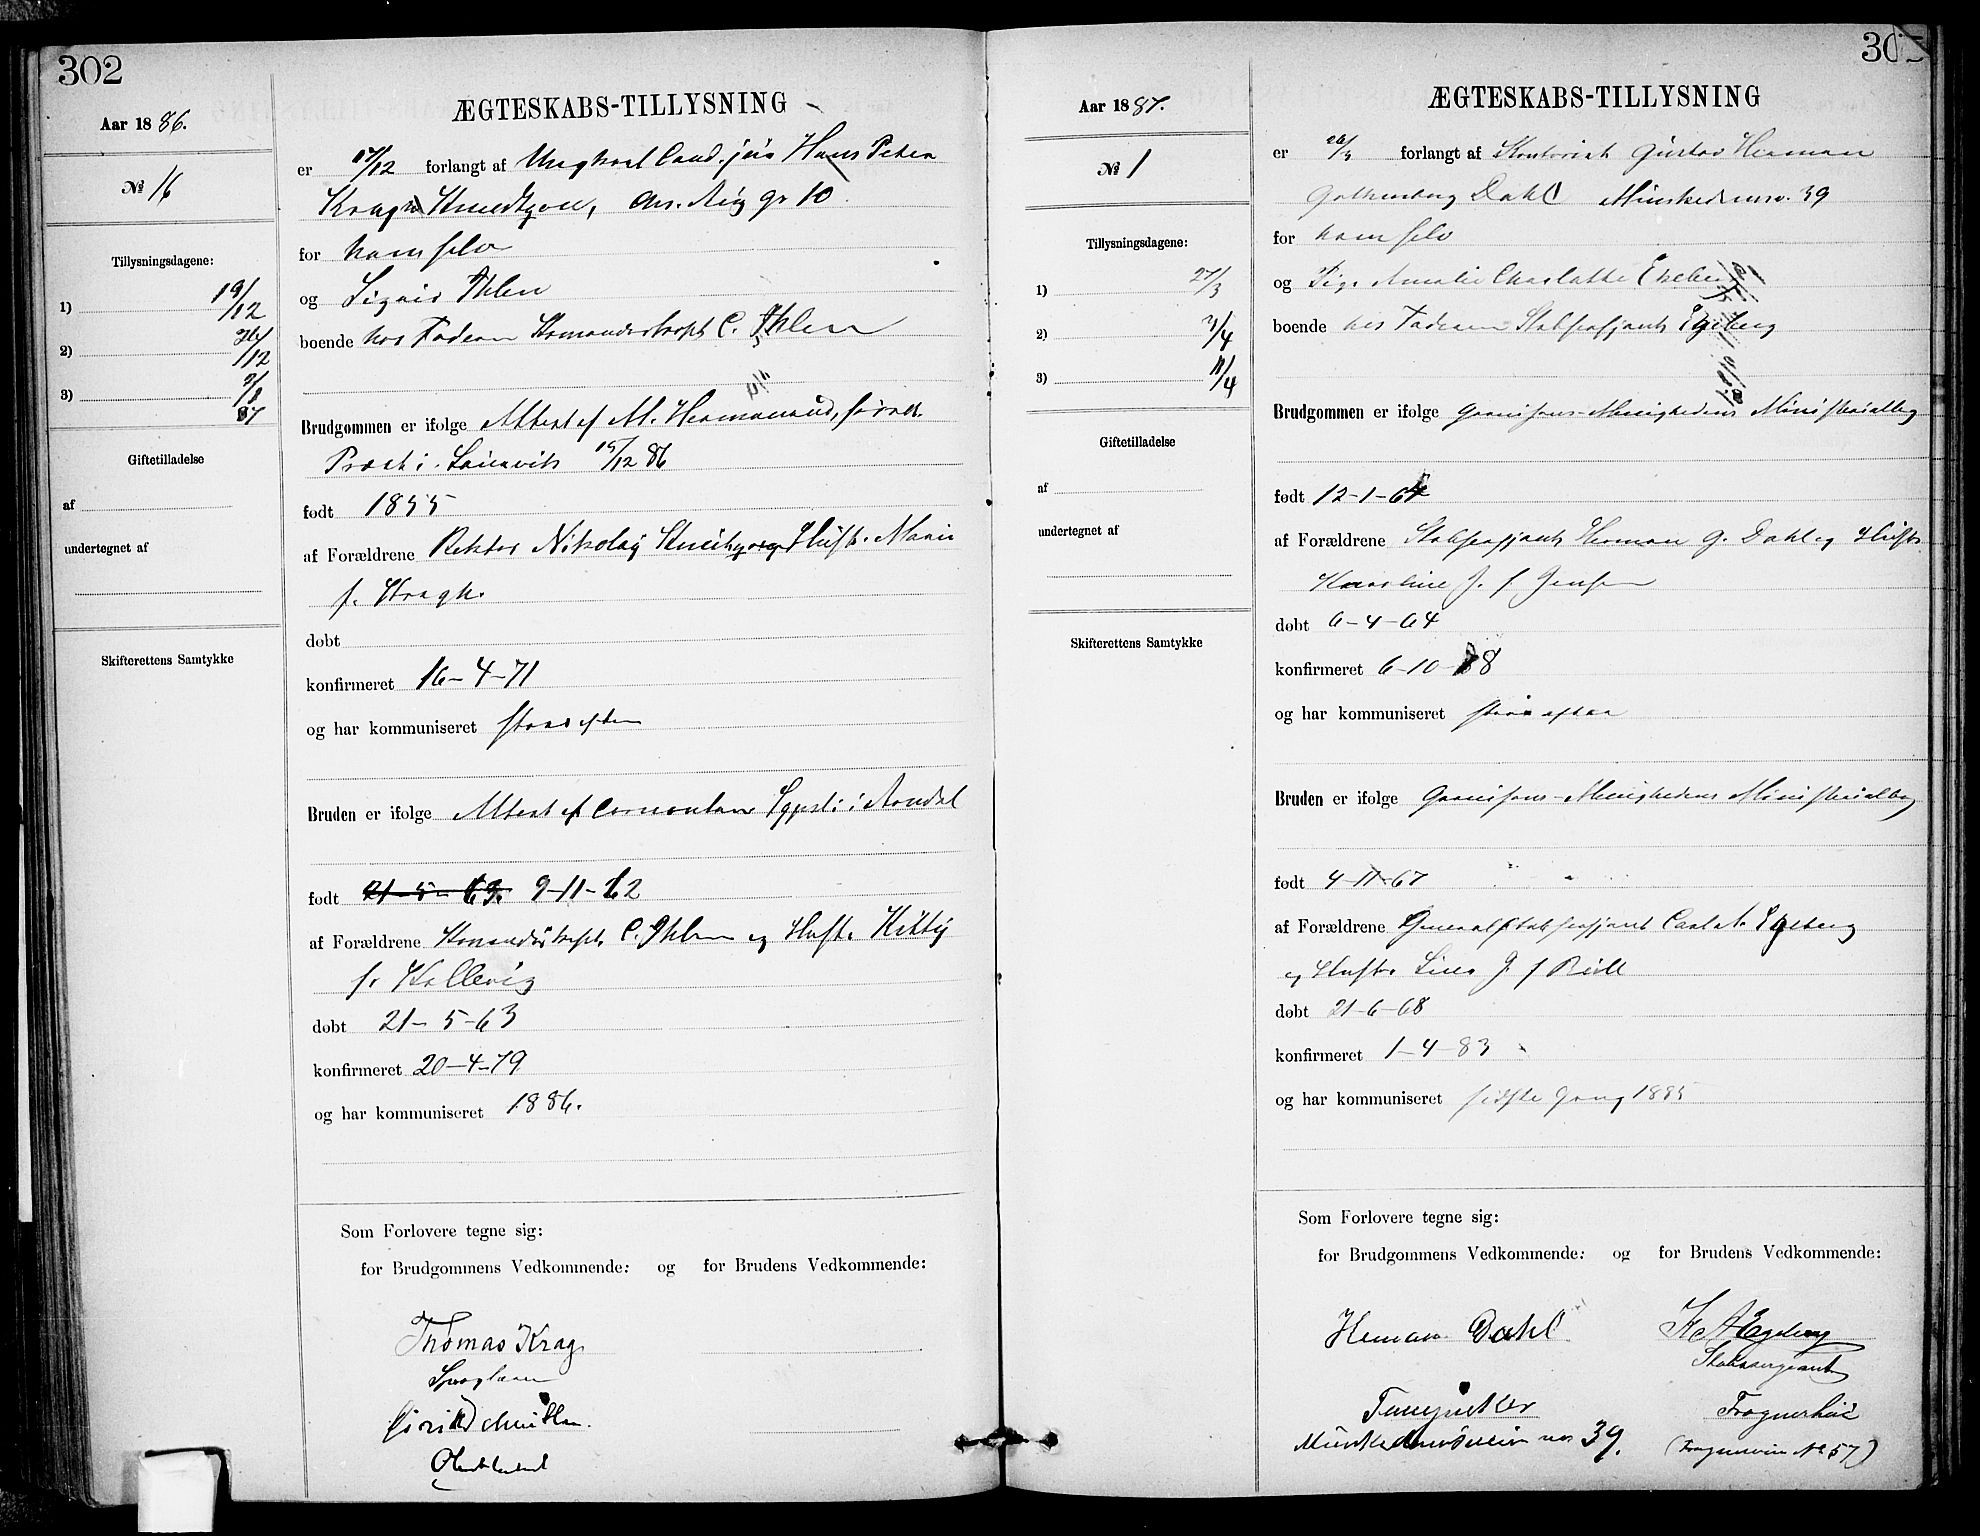 302
Aar 1886.
No 16
Tillysningsdagene:
1) 19/12
2) 26/12
3) 2/1
87
Giftetilladelse
af
undertegnet af
Skifterettens Samtykke
ÆGTESKABS-TILLYSNING
er 17/12 forlangt af Ungkarl Cand. jur Hans Peter
Kragh
for ham selv
og Sigrid Ihlen
boende hos Faderen C. Ihlen
Brudgommen er ifølge Attest af
Præst i 15/12 86
født 1855
af Forældrene Rektor Nikolaj Hust. Marie
f. Kragh.
døbt
konfirmeret 16-4-71
og har kommuniseret
Bruden er ifølge Attest af i Arendal
født 21-5-63. 9-11-62
af Forældrene C. Ihlen og Hust. Kitty
f. Kallevig
døbt 21-5-63
konfirmeret 20-4-79
og har kommuniseret 1886.
Som Forlovere tegne sig:
for Brudgommens Vedkommende: og for Brudens Vedkommende:
Thomas Krag
303
Aar 1887.
No 1
Tillysningsdagene:
1) 27/3
2) 3/4
3) 11/4
Giftetilladelse
af
undertegnet af
Skifterettens Samtykke
ÆGTESKABS-TILLYSNING
er 26/3 forlangt af Kontorist Gustav Herman
Dahl Munkedamsv. 39
for ham selv
og Pige Amalie Charlotte Egeberg
boende hos Faderen Stabssersjant Egeberg
Brudgommen er ifølge Garnisons-Menighedens Ministerialbog
født 12-1-64
af Forældrene Stabssersjant Herman G. Dahl og Hust.
Karoline J. f Jensen
døbt 6-4-64
konfirmeret 6-10-78
og har kommuniseret
Bruden er ifølge Garnisons-Menighedens Ministerialbog
født 4-11-67
af Forældrene Egeberg
og Hust.
døbt 21-6-68
konfirmeret 1-4-83
og har kommuniseret sidste Gang 1885
Som Forlovere tegne sig:
for Brudgommens Vedkommende: og for Brudens Vedkommende:
Herman Dahl K A Egeberg
Stabssergeant
39. (Frognerveien No 57)